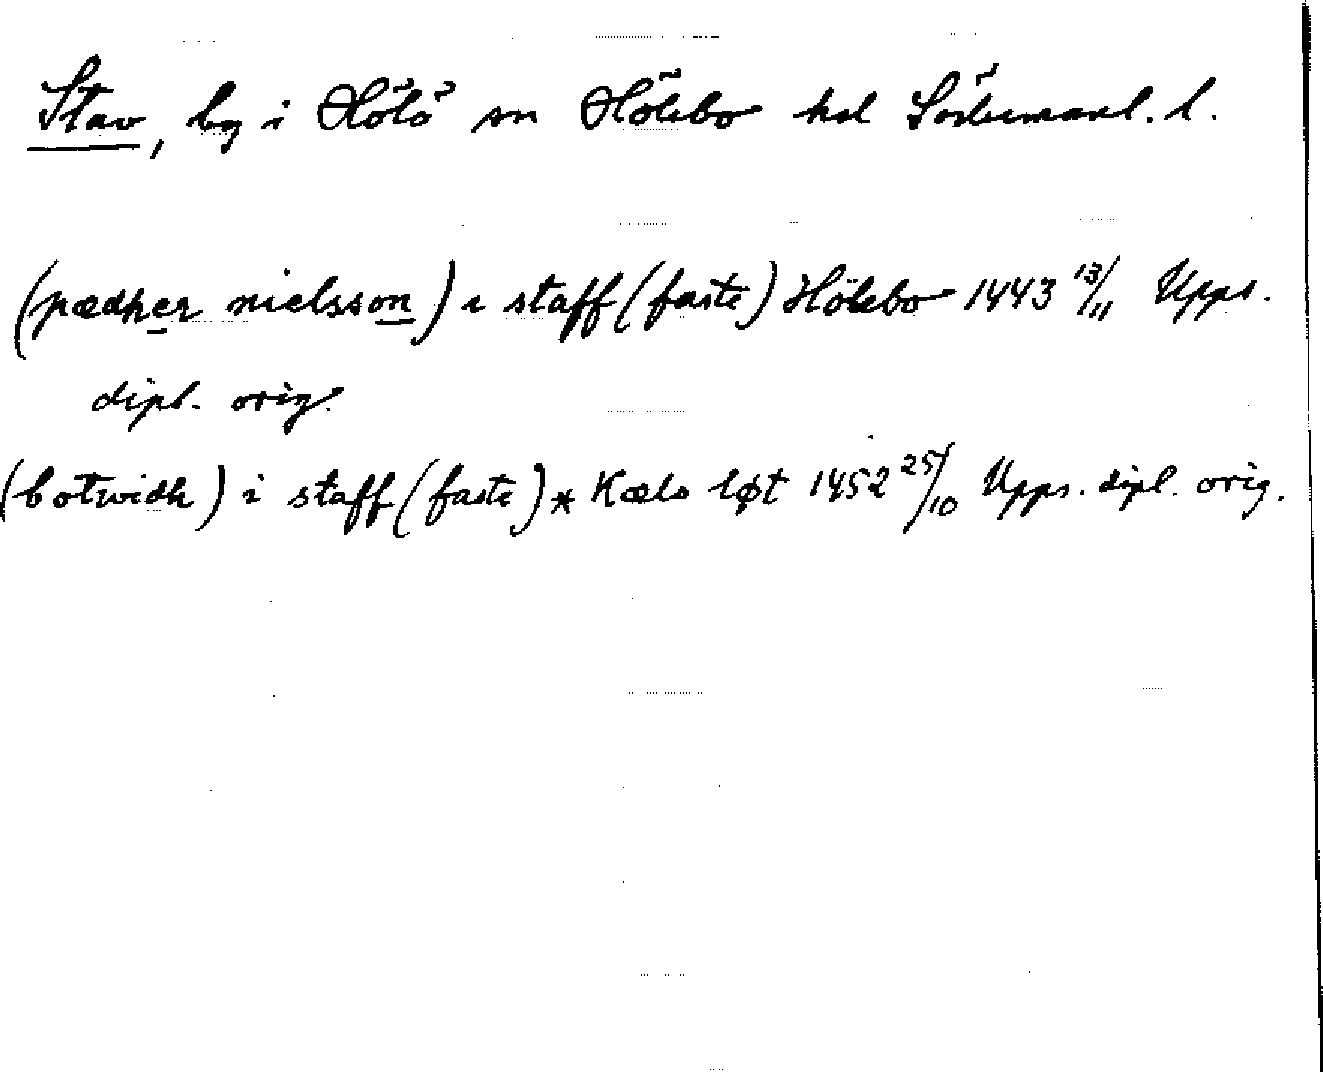 Stav, by i Hölö sn Hölebo hd Södermanl. l.
(pædher nielsson) i staff (faste) Hölebo 1443 13/11 Upps.
dipl. orig.
(botwidh) i staff (faste) * Kælø løt 1452 25/10 Upps. dipl. orig.